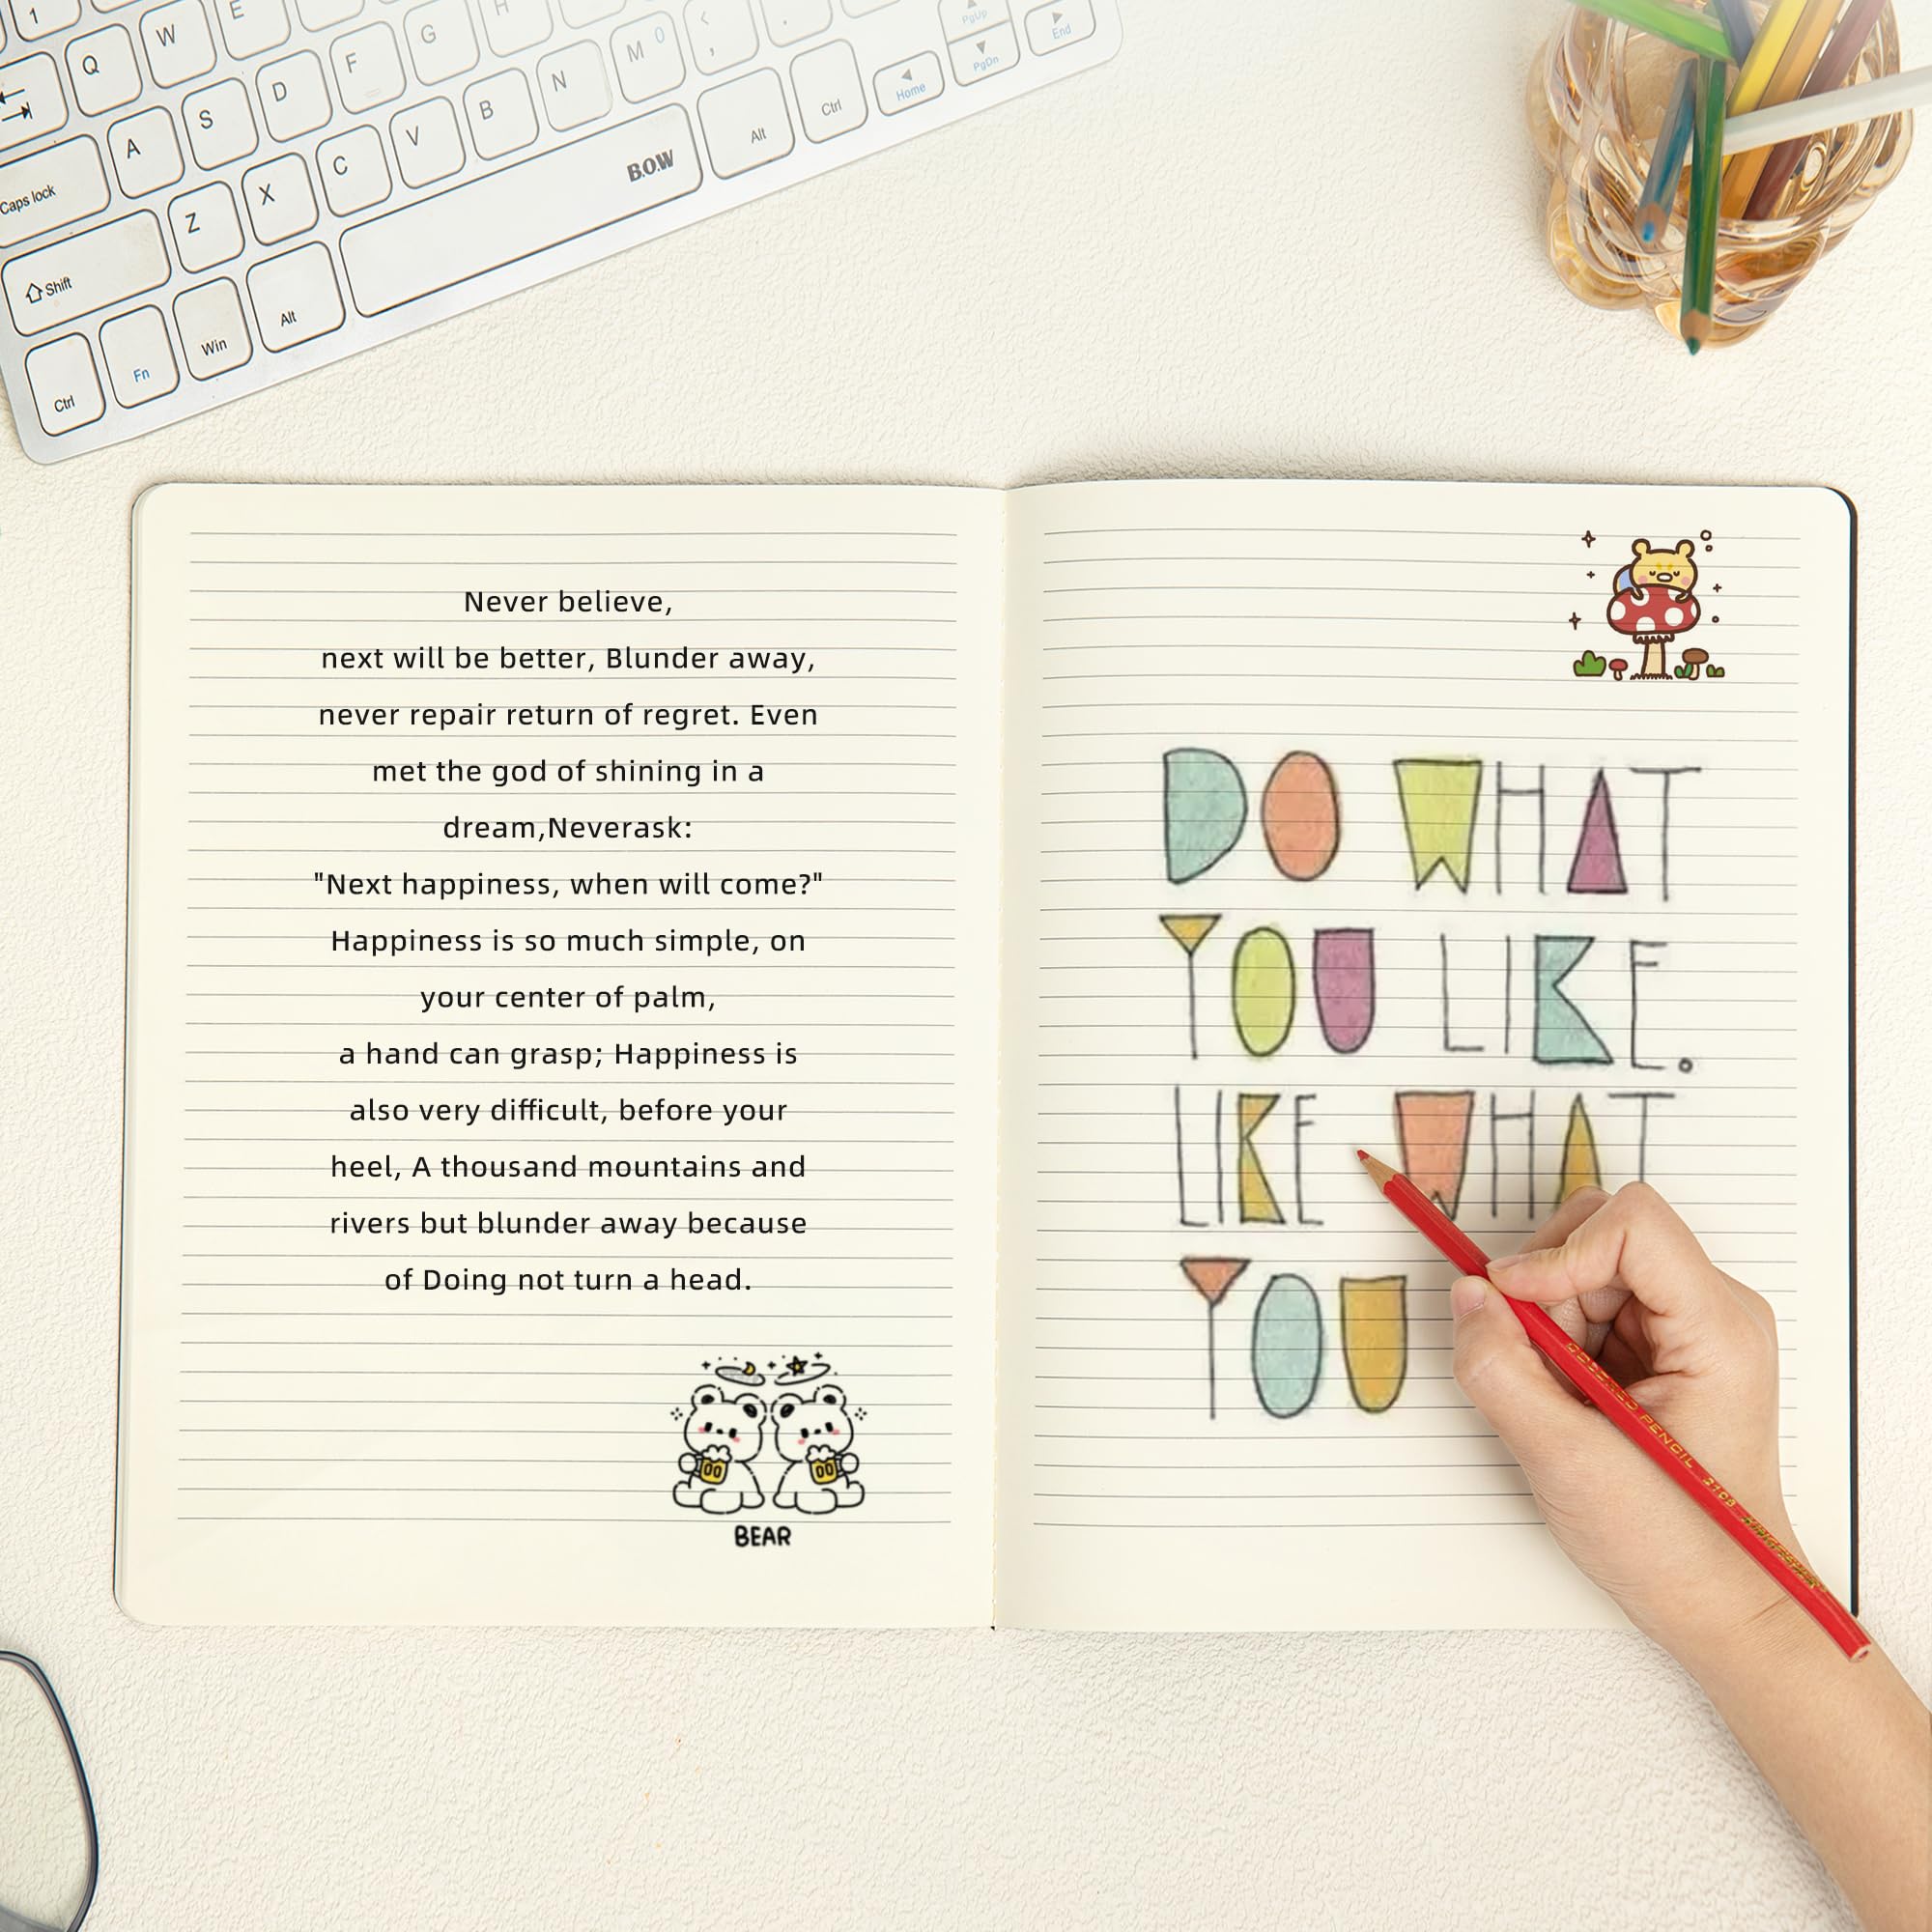 1
Q
W
E
Caps lock
A
S
D
F
G
H
Shift
Z
X
C
V
B
N
M
0
<
,
.
Ctrl
Fn
Win
Alt
B.O.W
Alt
Ctrl
Home
PgUp
PgDn
End
Never believe,
next will be better, Blunder away,
never repair return of regret. Even
met the god of shining in a
dream,Neverask:
"Next happiness, when will come?"
Happiness is so much simple, on
your center of palm,
a hand can grasp; Happiness is
also very difficult, before your
heel, A thousand mountains and
rivers but blunder away because
of Doing not turn a head.
BEAR
DO WHAT
YOU LIKE.
LIKE WHAT
YOU
COLORED PENCIL